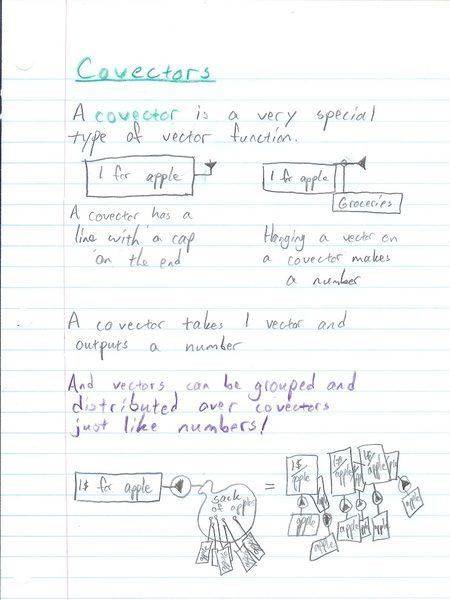 Covectors
A covector is a very special
type of vector function.
1 for apple
1 for apple
Groceries
A covector has a
line with a cap
on the end
Hanging a vector on
a covector makes
a number
A covector takes 1 vector and
outputs a number
And vectors can be grouped and
distributed over covectors
just like numbers!
1$ for apple
sack
of apples
=
1$/
apple
apple
1$/
apple
apple
1$/
apple
apple
apple
apple